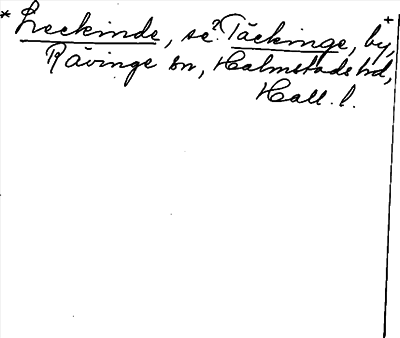 * Leckinde, se? Täckinge, by,+
Rävinge sn, Halmstads hd,
Hall. l.